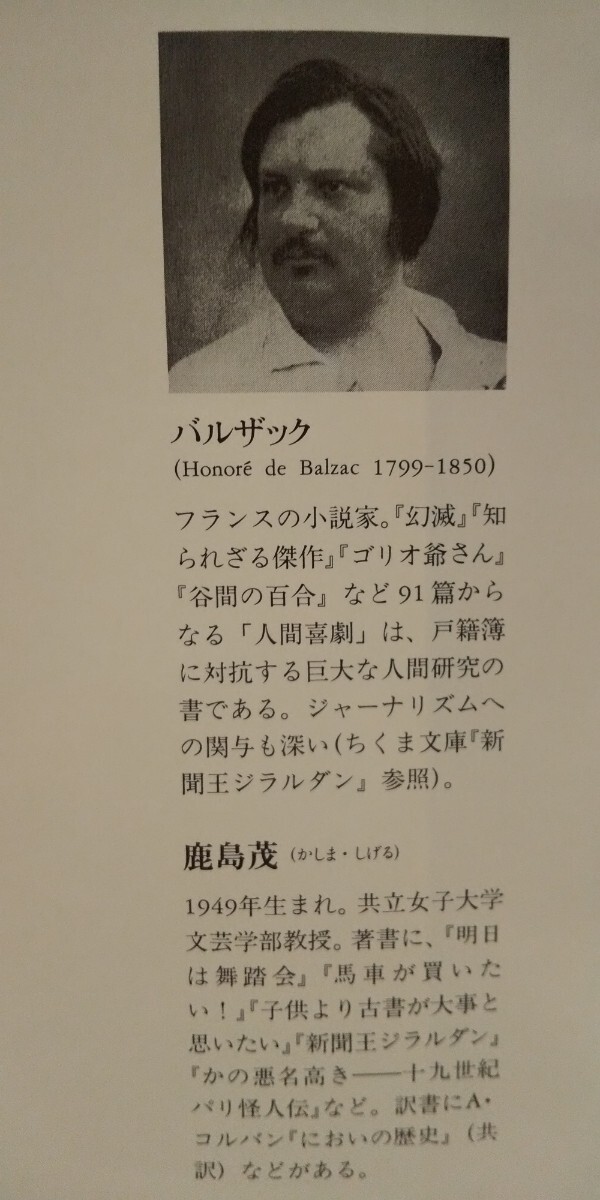 バルザック
(Honoré de Balzac 1799-1850)
フランスの小説家。『幻滅』『知
られざる傑作』『ゴリオ爺さん』
『谷間の百合』など91篇から
なる「人間喜劇」は、戸籍簿
に対抗する巨大な人間研究の
書である。ジャーナリズムへ
の関与も深い(ちくま文庫『新
聞王ジラルダン』参照)。
鹿島茂 (かしま・しげる)
1949年生まれ。共立女子大学
文芸学部教授。著書に、『明日
は舞踏会』『馬車が買いた
い!』『子供より古書が大事と
思いたい』『新聞王ジラルダン』
『かの悪名高き――十九世紀
パリ怪人伝』など。訳書にA・
コルバン『においの歴史』(共
訳)などがある。